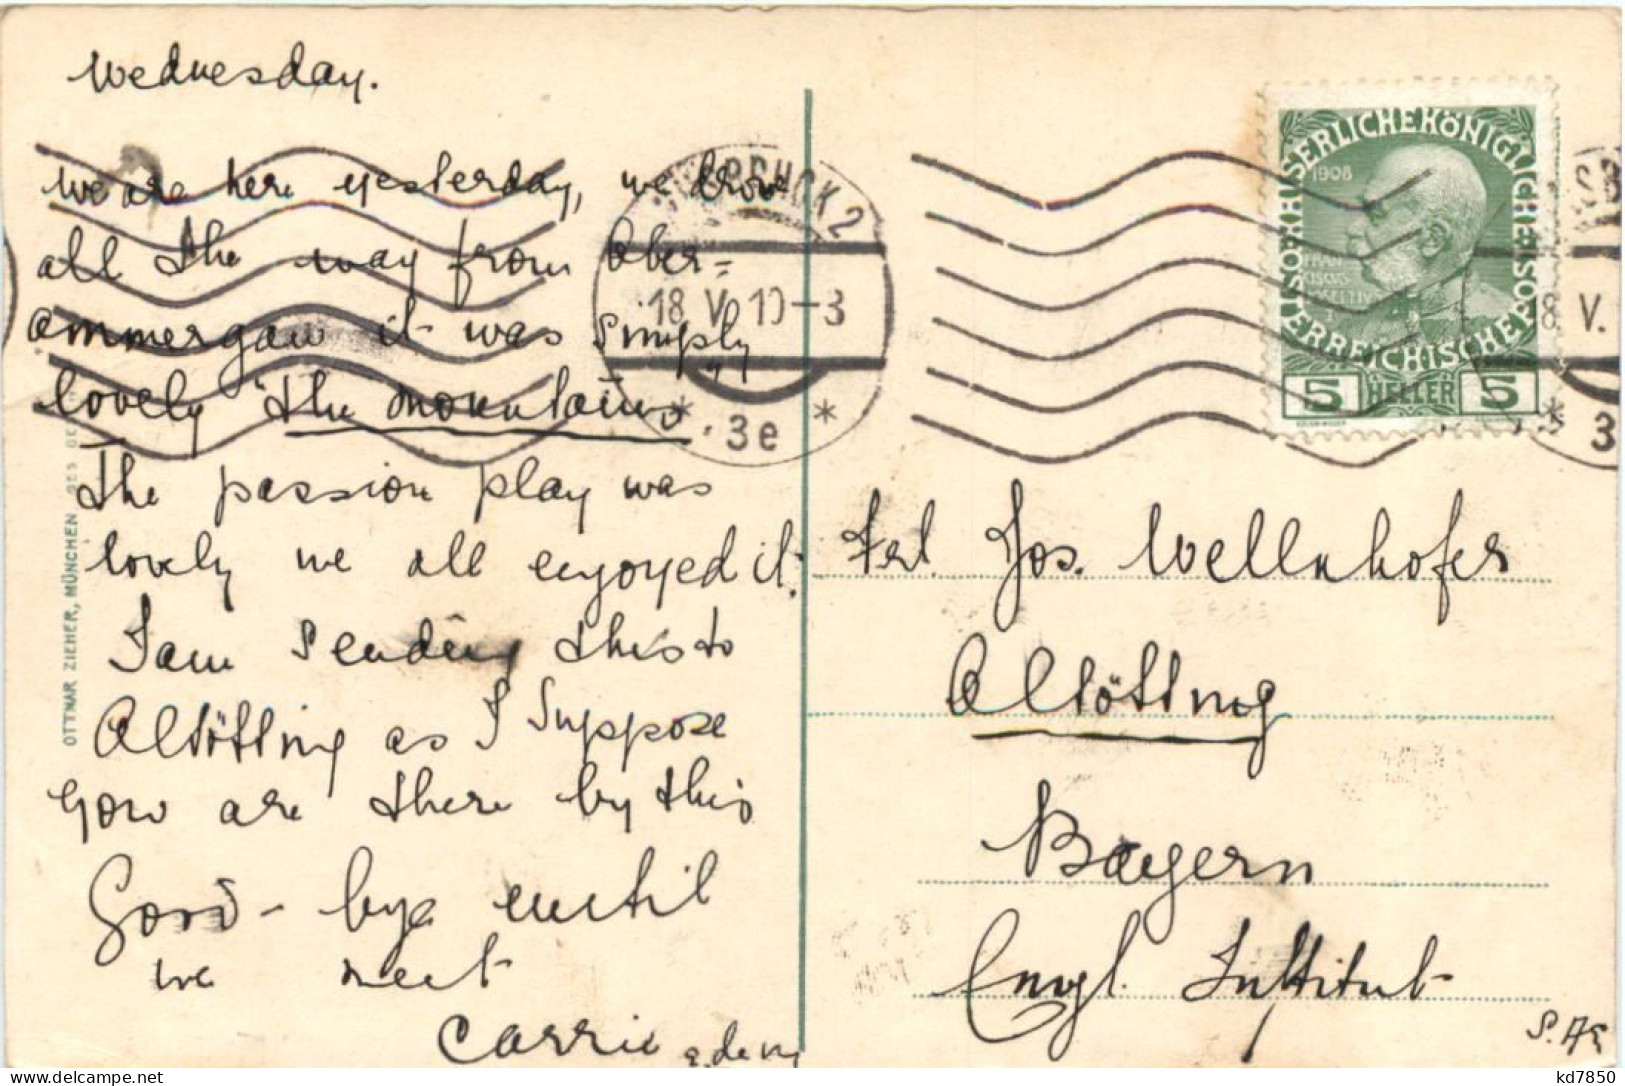 Wednesday.
We are here yesterday, we drove
all the way from Ober=
ammergau it was simply
lovely "the mountains
The passion play was
lovely we all enjoyed it.
I am sending this to
Altötting as I suppose
you are there by this
Good-bye until
we meet
Carrie
OTTMAR ZIEHER, MÜNCHEN
2
18 V 10-3
* 3e *
KAISERLICHE KÖNIGLICHE ÖSTERREICHISCHE POST
1908
FRAN
CISCVS
IOSEPHVS I
5 HELLER 5
8 V.
* 3
Frl. Jos. Wellnhofer
Altötting
Bayern
Engl. Institut
kd7850